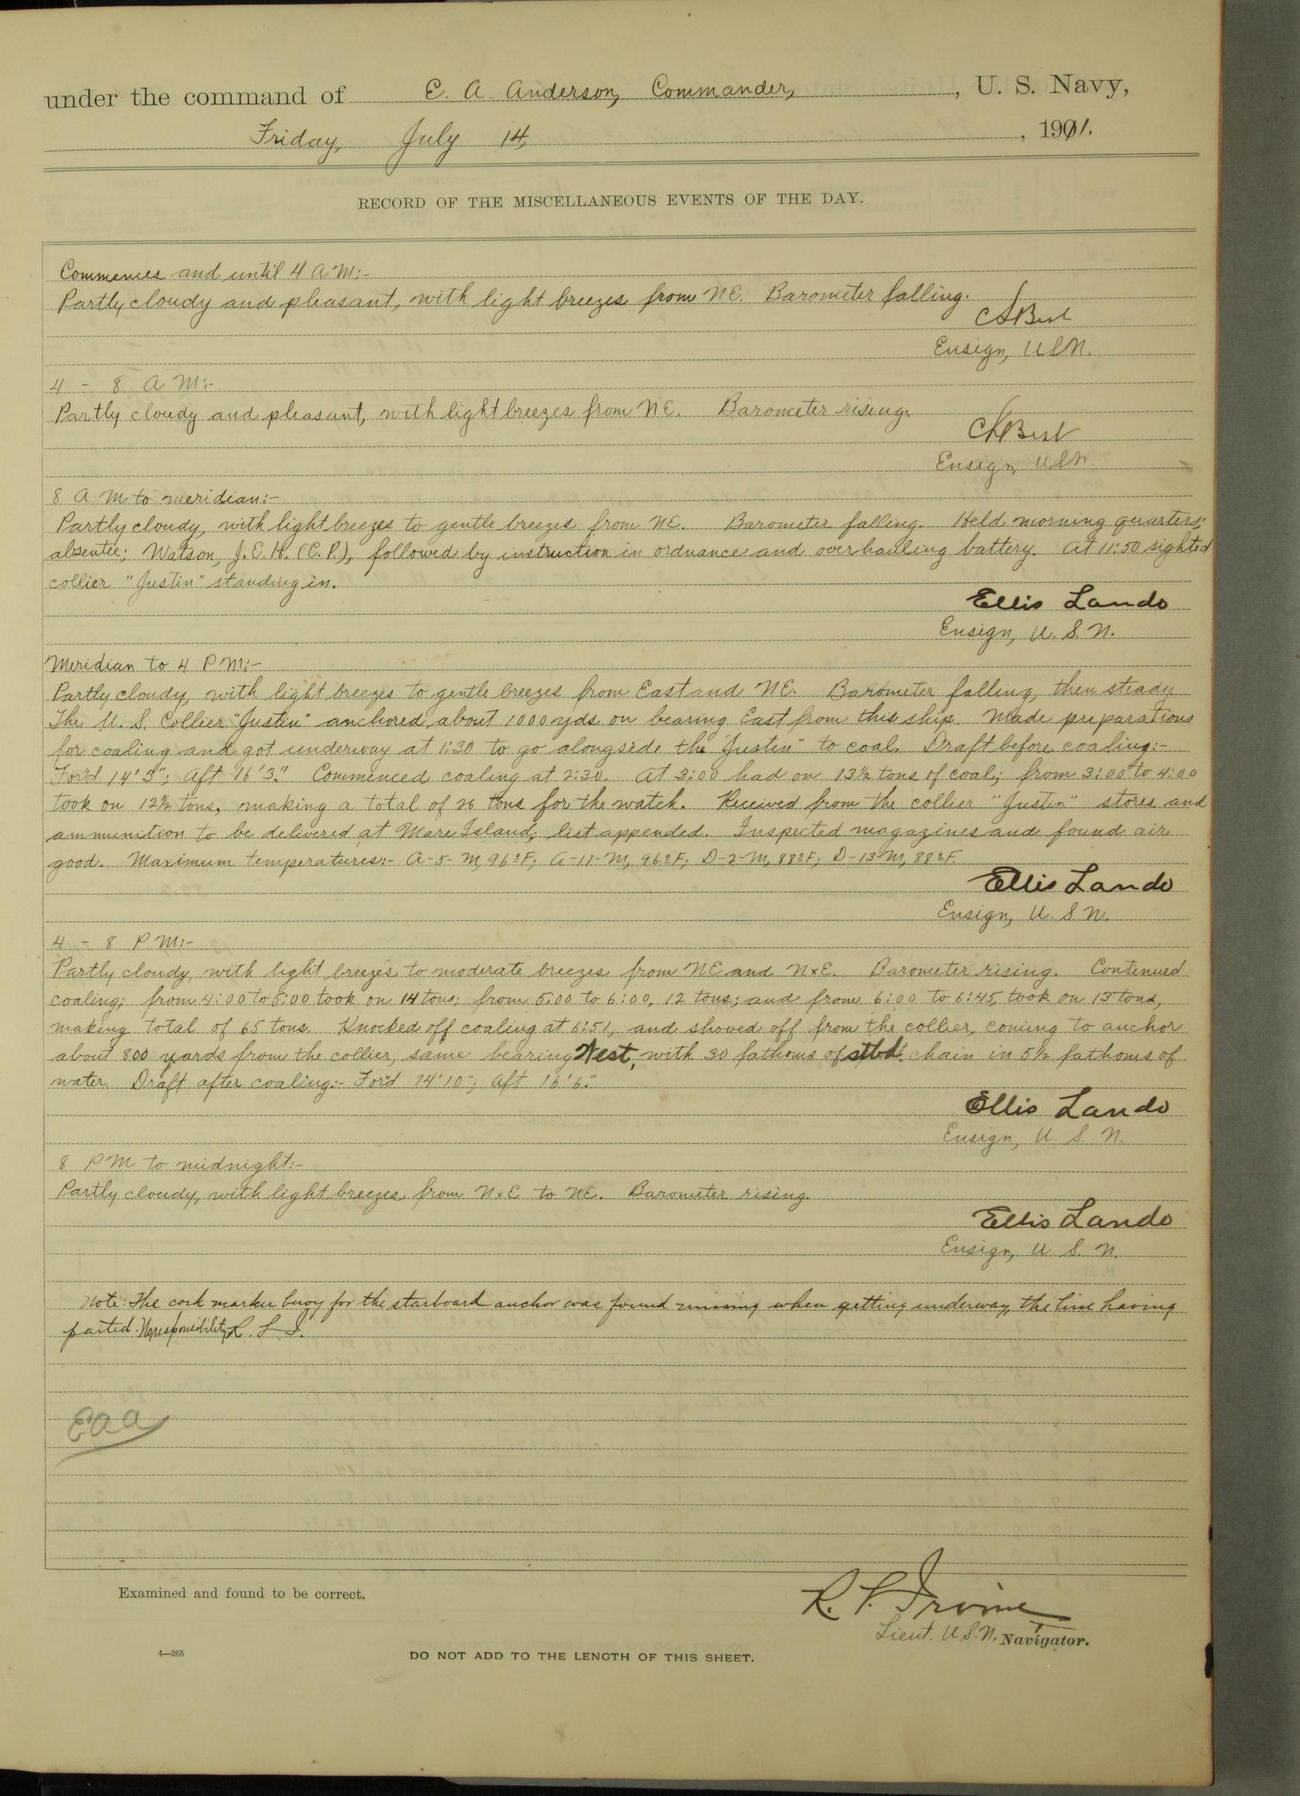 under the command of E. A. Anderson, Commander, , U. S. Navy,
Friday, July 14, , 1911.
RECORD OF THE MISCELLANEOUS EVENTS OF THE DAY.
Commences and until 4 A M:-
Partly cloudy and pleasant, with light breezes from NE. Barometer falling.
Ensign, U S N.
4 - 8 A M:-
Partly cloudy and pleasant, with light breezes from NE. Barometer rising.
Ensign, U S N.
8 A M to meridian:-
Partly cloudy, with light breezes to gentle breezes from NE. Barometer falling. Held morning quarters;
absentee; Watson, J.E.H. (C.P.), followed by instruction in ordnance and overhauling battery. At 11:50 sighted
collier "Justin" standing in.
Ellis Lando
Ensign, U. S. N.
Meridian to 4 P M:-
Partly cloudy, with light breezes to gentle breezes from East and NE. Barometer falling, then steady
The U. S. Collier "Justin" anchored about 1000 yds. on bearing East from this ship. Made preparations
for coaling and got underway at 1:30 to go alongside the "Justin" to coal. Draft before coaling:-
For'd 14'3"; Aft 16'3". Commenced coaling at 2:30. At 3:00 had on 13½ tons of coal; from 3:00 to 4:00
took on 12½ tons, making a total of 26 tons for the watch. Received from the collier "Justin" stores and
ammunition to be delivered at Mare Island; list appended. Inspected magazines and found air
good. Maximum temperatures:- A-5-M, 96°F; A-11-M, 96°F; D-2-M, 88°F; D-13-M, 88°F.
Ellis Lando
Ensign, U. S N.
4 - 8 P M:-
Partly cloudy, with light breezes to moderate breezes from NE and NxE. Barometer rising. Continued
coaling; from 4:00 to 5:00 took on 14 tons; from 5:00 to 6:00, 12 tons; and from 6:00 to 6:45, took on 13 tons,
making total of 65 tons. Knocked off coaling at 6:51, and shoved off from the collier, coming to anchor
about 800 yards from the collier, same bearing West, with 30 fathoms of stbd. chain in 5½ fathoms of
water. Draft after coaling:- For'd 14'10"; Aft 16'6".
Ellis Lando
Ensign, U. S. N.
8 P M to midnight:-
Partly cloudy, with light breezes from NxE to NE. Barometer rising.
Ellis Lando
Ensign, U. S. N.
Note: The cork marker buoy for the starboard anchor was found missing when getting underway, the line having
parted. No responsibility.
EAA
Examined and found to be correct.
Lieut. U.S.N. Navigator.
4—265
DO NOT ADD TO THE LENGTH OF THIS SHEET.